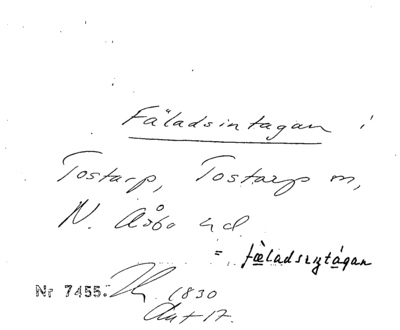 Fäladsintagan i
Tostarp, Tostarp m,
N. Åsbo hd.
= fäladsıntágan
Nr 7455. 1830
Ant 17.